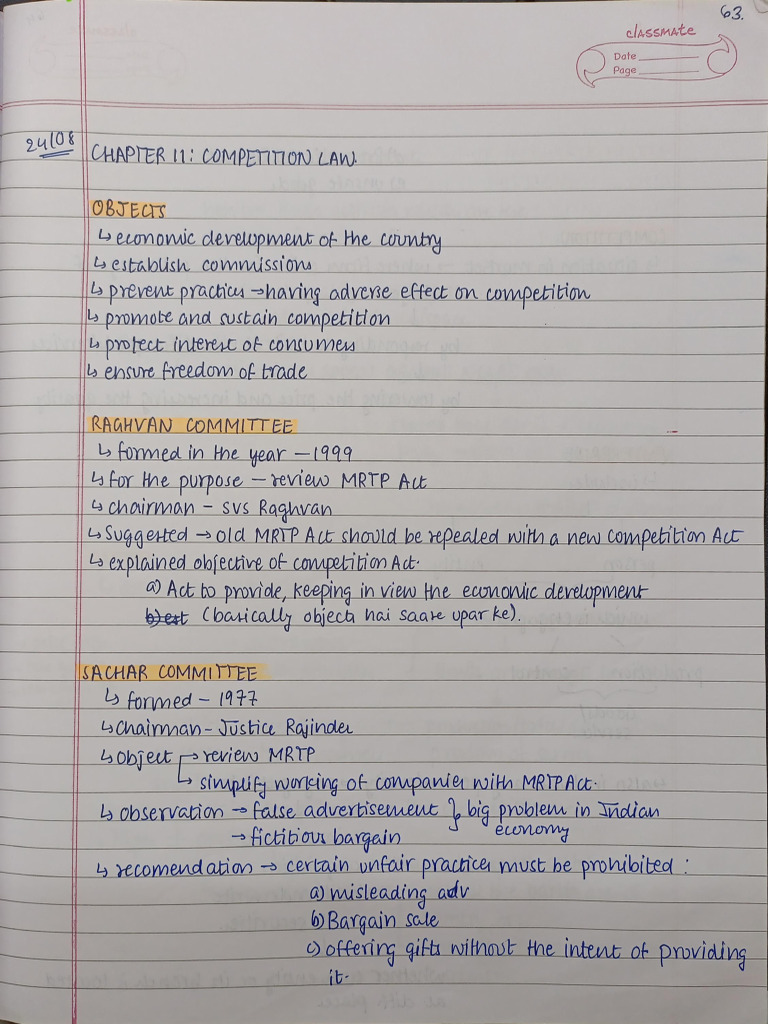 63.
classmate
Date
Page
24/08
CHAPTER 11: COMPETITION LAW
OBJECTS
↳ economic development of the country
↳ establish commissions
↳ prevent practices → having adverse effect on competition
↳ promote and sustain competition
↳ protect interest of consumers
↳ ensure freedom of trade
RAGHVAN COMMITTEE
↳ formed in the year – 1999
↳ for the purpose – review MRTP Act
↳ chairman – SVS Raghvan
↳ Suggested → old MRTP Act should be repealed with a new Competition Act
↳ explained objective of competition Act.
a) Act to provide, keeping in view the economic development
b) est (basically objects hai saare upar ke).
SACHAR COMMITTEE
↳ formed – 1977
↳ Chairman – Justice Rajinder
↳ object → review MRTP
↳ simplify working of companies with MRTP Act.
↳ observation → false advertisement } big problem in Indian
→ fictitious bargain economy
↳ recomendation → certain unfair practices must be prohibited :
a) misleading adv
b) Bargain sale
c) offering gifts without the intent of providing
it.